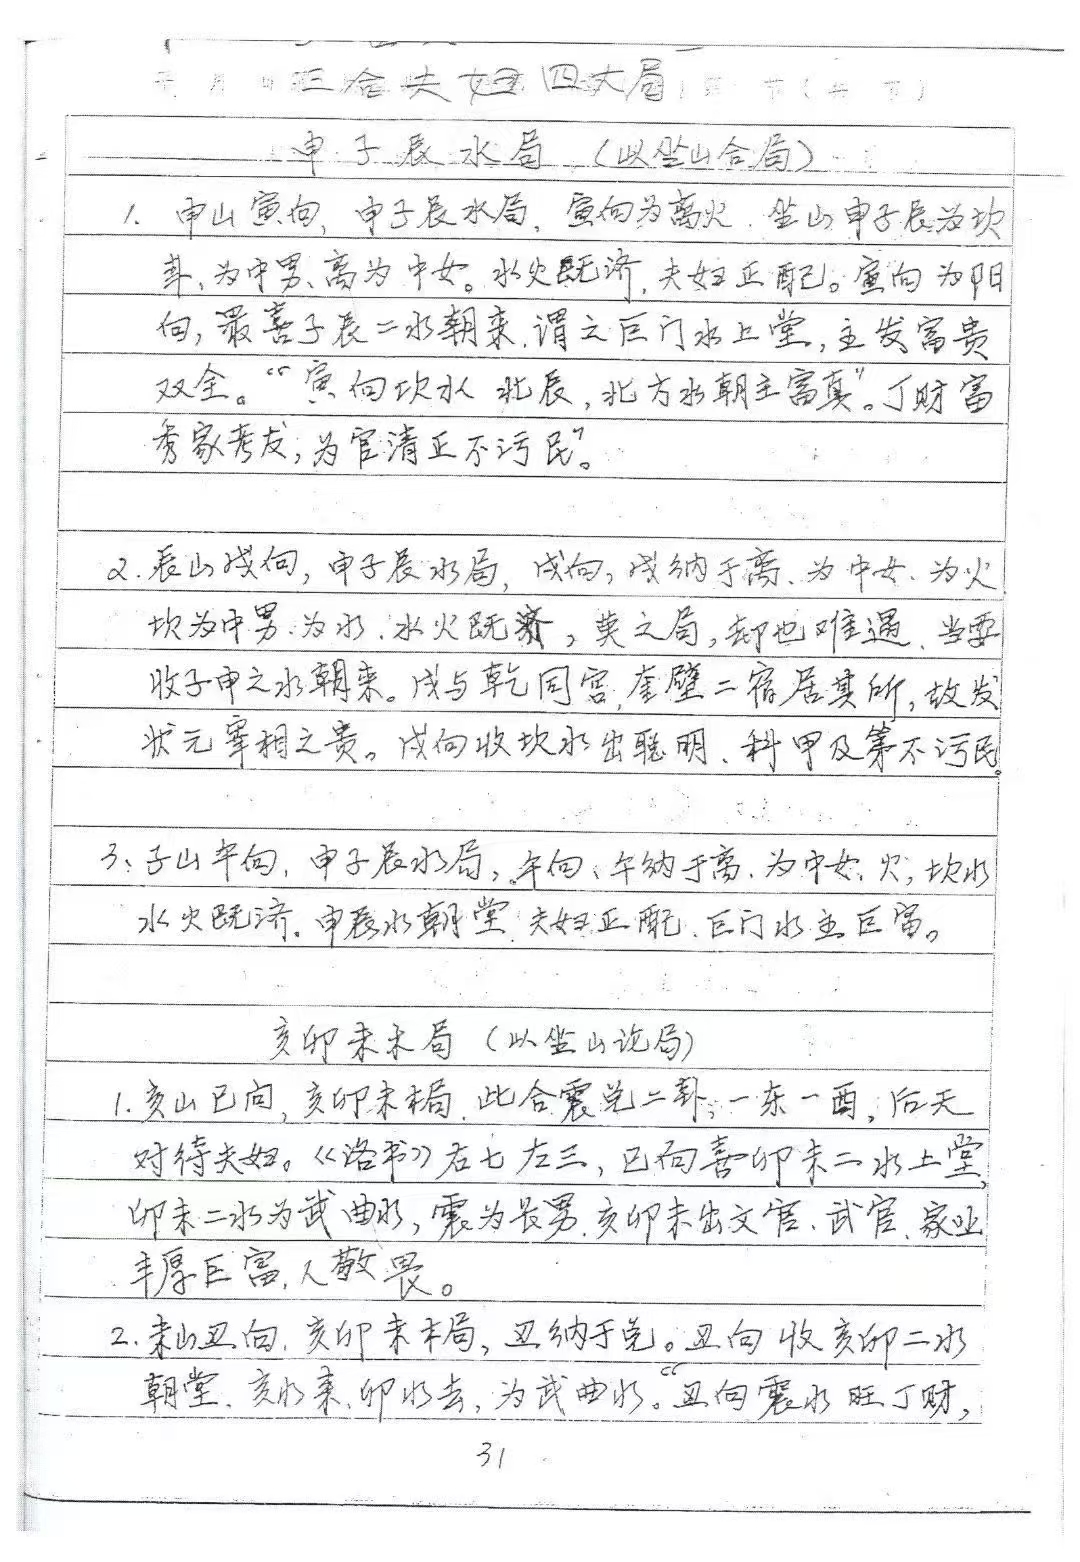 三合夫妇四大局
申子辰水局（以坐山合局）
1. 申山寅向，申子辰水局，寅向为离火．坐山申子辰为坎
卦、为中男、离为中女。水火既济，夫妇正配。寅向为阳
向，最喜子辰二水朝来，谓之巨门水上堂，主发富贵
双全。“寅向坎水 北辰，北方水朝主富真”。丁财富
秀家考发，为官清正不污民”。
2. 辰山戌向，申子辰水局，戌向，戌纳于离、为中女、为火
坎为中男、为水．水火既济，莫之局，却也难遇、当要
收子申之水朝来。戌与乾同宫，奎壁二宿居其所，故发
状元宰相之贵。戌向收坎水出聪明、科甲及第不污民。
3、子山午向，申子辰水局，午向、午纳于离、为中女、火，坎水
水火既济．申辰水朝堂，夫妇正配、巨门水主巨富。
亥卯未木局（以坐山论局）
1. 亥山巳向，亥卯未木局．此合震兑二卦，一东一酉，后天
对待夫妇。《洛书》右七左三，巳向喜卯未二水上堂，
卯未二水为武曲水，震为长男．亥卯未出文官、武官、家业
丰厚巨富，人敬畏。
2. 未山丑向．亥卯未木局，丑纳于兑。丑向收亥卯二水
朝堂．亥水来、卯水去，为武曲水。“丑向震水旺丁财，
31